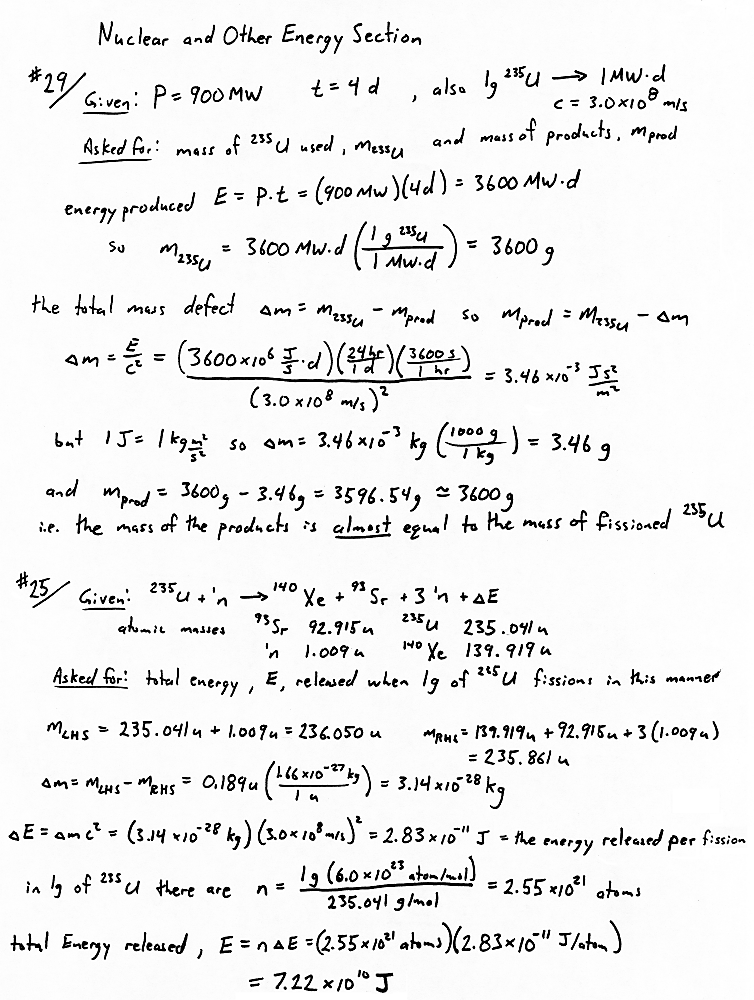 Nuclear and Other Energy Section
#29/ Given: P = 900 MW t = 4 d , also 1g ²³⁵U → 1 MW·d
c = 3.0×10⁸ m/s
Asked for: mass of ²³⁵U used, m₂₃₅U and mass of products, mprod
energy produced E = P·t = (900 MW)(4d) = 3600 MW·d
so m₂₃₅U = 3600 MW·d (1 g ²³⁵U / 1 MW·d) = 3600 g
the total mass defect Δm = m₂₃₅U − mprod so mprod = m₂₃₅U − Δm
Δm = E/c² = (3600×10⁶ J/s·d)(24hr/1 d)(3600 s/1 hr) / (3.0×10⁸ m/s)² = 3.46×10⁻³ Js²/m²
but 1 J = 1 kg m²/s² so Δm = 3.46×10⁻³ kg (1000 g / 1 kg) = 3.46 g
and mprod = 3600g − 3.46g = 3596.54g ≃ 3600g
i.e. the mass of the products is almost equal to the mass of fissioned ²³⁵U
#25/ Given: ²³⁵U + ¹n → ¹⁴⁰Xe + ⁹³Sr + 3 ¹n + ΔE
atomic masses ⁹³Sr 92.915u ²³⁵U 235.041u
¹n 1.009u ¹⁴⁰Xe 139.919u
Asked for: total energy, E, released when 1g of ²³⁵U fissions in this manner
mLHS = 235.041u + 1.009u = 236.050 u mRHS = 139.919u + 92.915u + 3(1.009u)
= 235.861 u
Δm = mLHS − mRHS = 0.189u (1.66×10⁻²⁷ kg / 1 u) = 3.14×10⁻²⁸ kg
ΔE = Δmc² = (3.14×10⁻²⁸ kg)(3.0×10⁸ m/s)² = 2.83×10⁻¹¹ J = the energy released per fission
in 1g of ²³⁵U there are n = 1g (6.0×10²³ atom/mol) / 235.041 g/mol = 2.55×10²¹ atoms
total Energy released, E = nΔE = (2.55×10²¹ atoms)(2.83×10⁻¹¹ J/atom)
= 7.22×10¹⁰ J